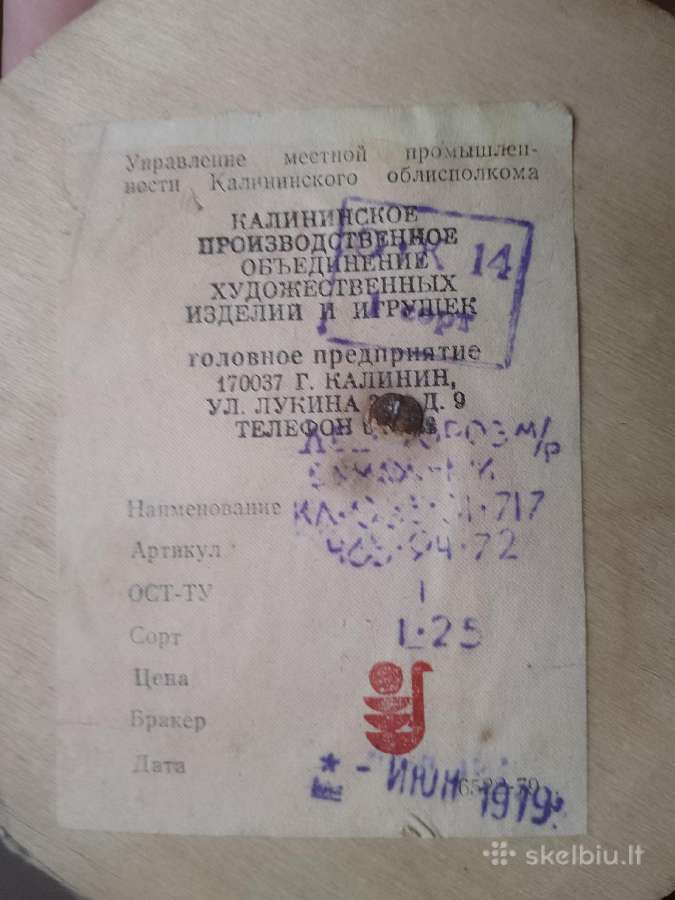 Управление местной промышлен-
ности Калининского облисполкома
КАЛИНИНСКОЕ
ПРОИЗВОДСТВЕННОЕ
ОБЪЕДИНЕНИЕ
ХУДОЖЕСТВЕННЫХ
ИЗДЕЛИЙ И ИГРУШЕК
14
1 сорт
головное предприятие
170037 Г. КАЛИНИН,
УЛ. ЛУКИНА Д. 9
ТЕЛЕФОН
М/Р
Наименование
717
Артикул
04-72
ОСТ-ТУ 1
Сорт 1-25
Цена
Бракер
Дата
- ИЮН 1979
skelbiu.lt